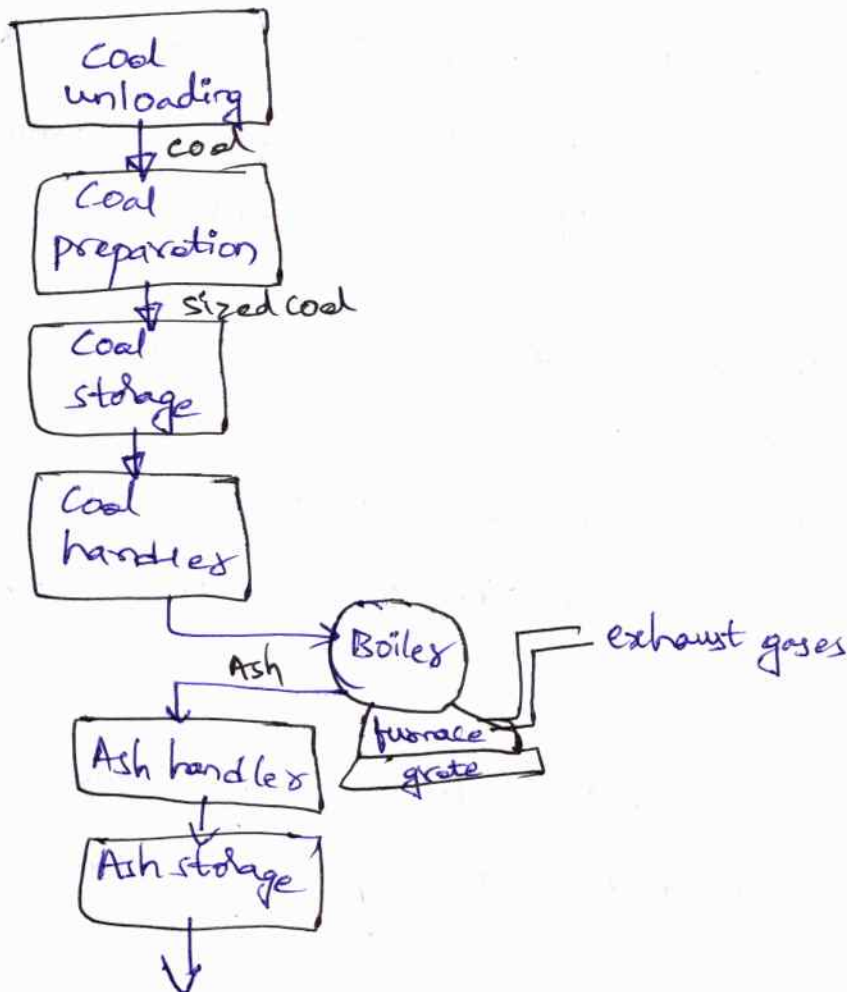 Coal
unloading
coal
Coal
preparation
sized coal
Coal
storage
Coal
handler
Boiler
exhaust gases
Ash
furnace
grate
Ash handler
Ash storage